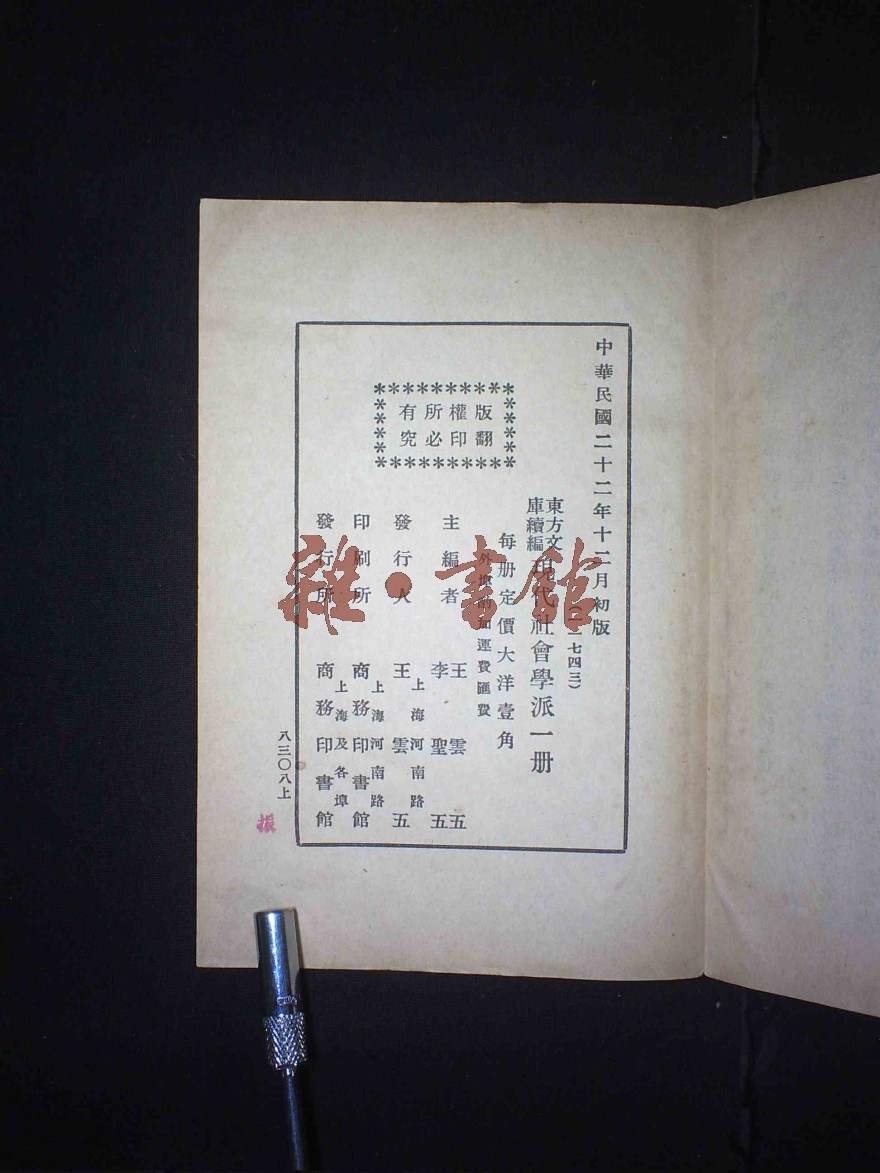 中華民國二十二年十二月初版
(一一七四三)
東方文
庫續編
現代社會學派一册
每册定價大洋壹角
外埠酌加運費匯費
版權所有
翻印必究
主編者
王雲五
李聖五
發行人
上海河南路
王雲五
印刷所
上海河南路
商務印書館
發行所
上海及各埠
商務印書館
八三〇八上
振
雜·書館